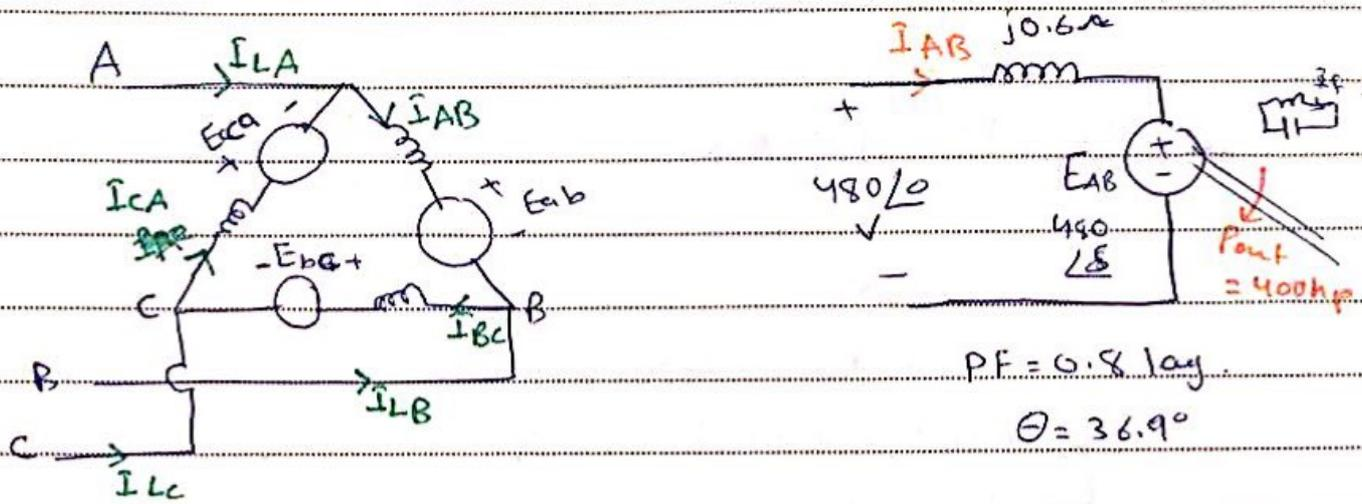 A
I_LA
E_ca
-
+
I_AB
+
E_ab
-
I_CA
-E_bc+
C
B
I_BC
B
I_LB
C
I_LC
I_AB
j0.6Ω
I_f
+
480∠0
V
-
+
-
E_AB
480
∠δ
Pout
= 400hp
PF = 0.8 lag.
Θ = 36.9°